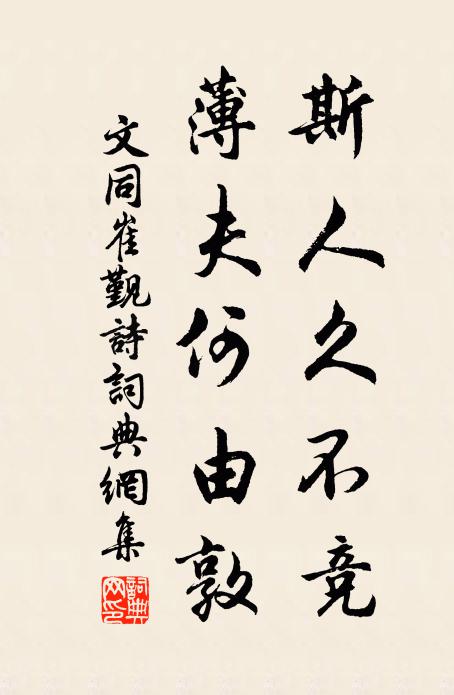 斯人久不竞
薄夫何由敦
文同崔覲詩詞典網集
詞典
网印